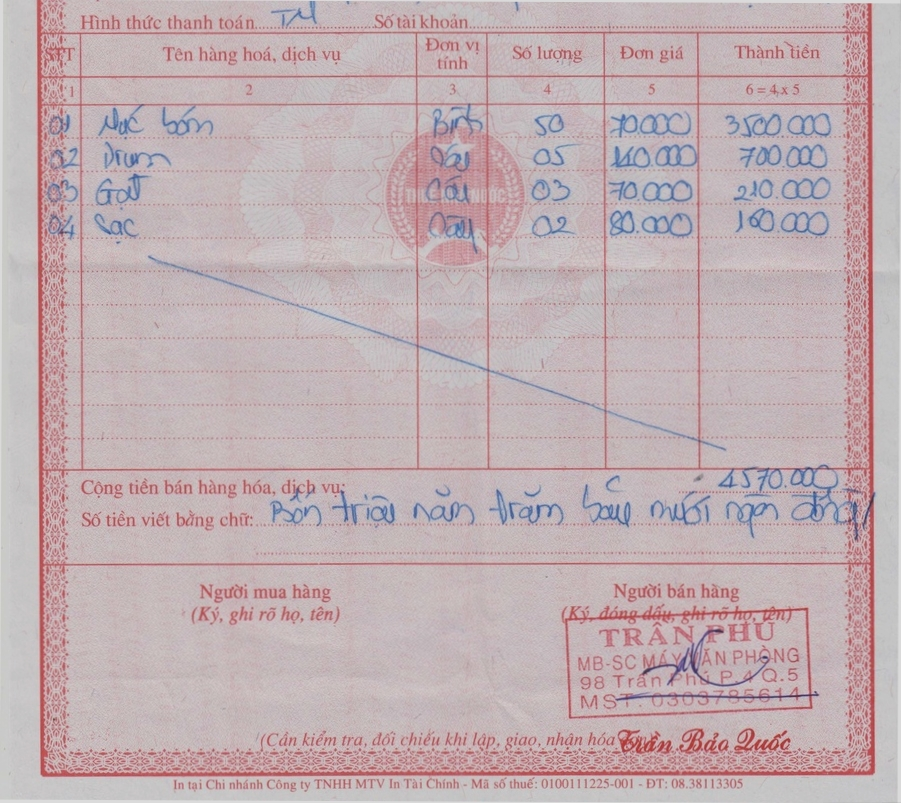 Hình thức thanh toán TM Số tài khoản
STT Tên hàng hoá, dịch vụ Đơn vị tính Số lượng Đơn giá Thành tiền
1 2 3 4 5 6 = 4 x 5
01 Mực bơm Bình 50 70.000 3500.000
02 Drum Cây 05 140.000 700.000
03 Gạt Cây 03 70.000 210.000
04 Sạc Cây 02 80.000 160.000
Cộng tiền bán hàng hóa, dịch vụ: 4570.000
Số tiền viết bằng chữ: Bốn triệu năm trăm bảy mươi ngàn đồng/
Người mua hàng Người bán hàng
(Ký, ghi rõ họ, tên) (Ký, đóng dấu, ghi rõ họ, tên)
TRẦN PHÚ
MB-SC MÁY VĂN PHÒNG
98 Trần Phú P.4 Q.5
MST: 0303785614
(Cần kiểm tra, đối chiếu khi lập, giao, nhận hóa
Trần Bảo Quốc
In tại Chi nhánh Công ty TNHH MTV In Tài Chính - Mã số thuế: 0100111225-001 - ĐT: 08.38113305